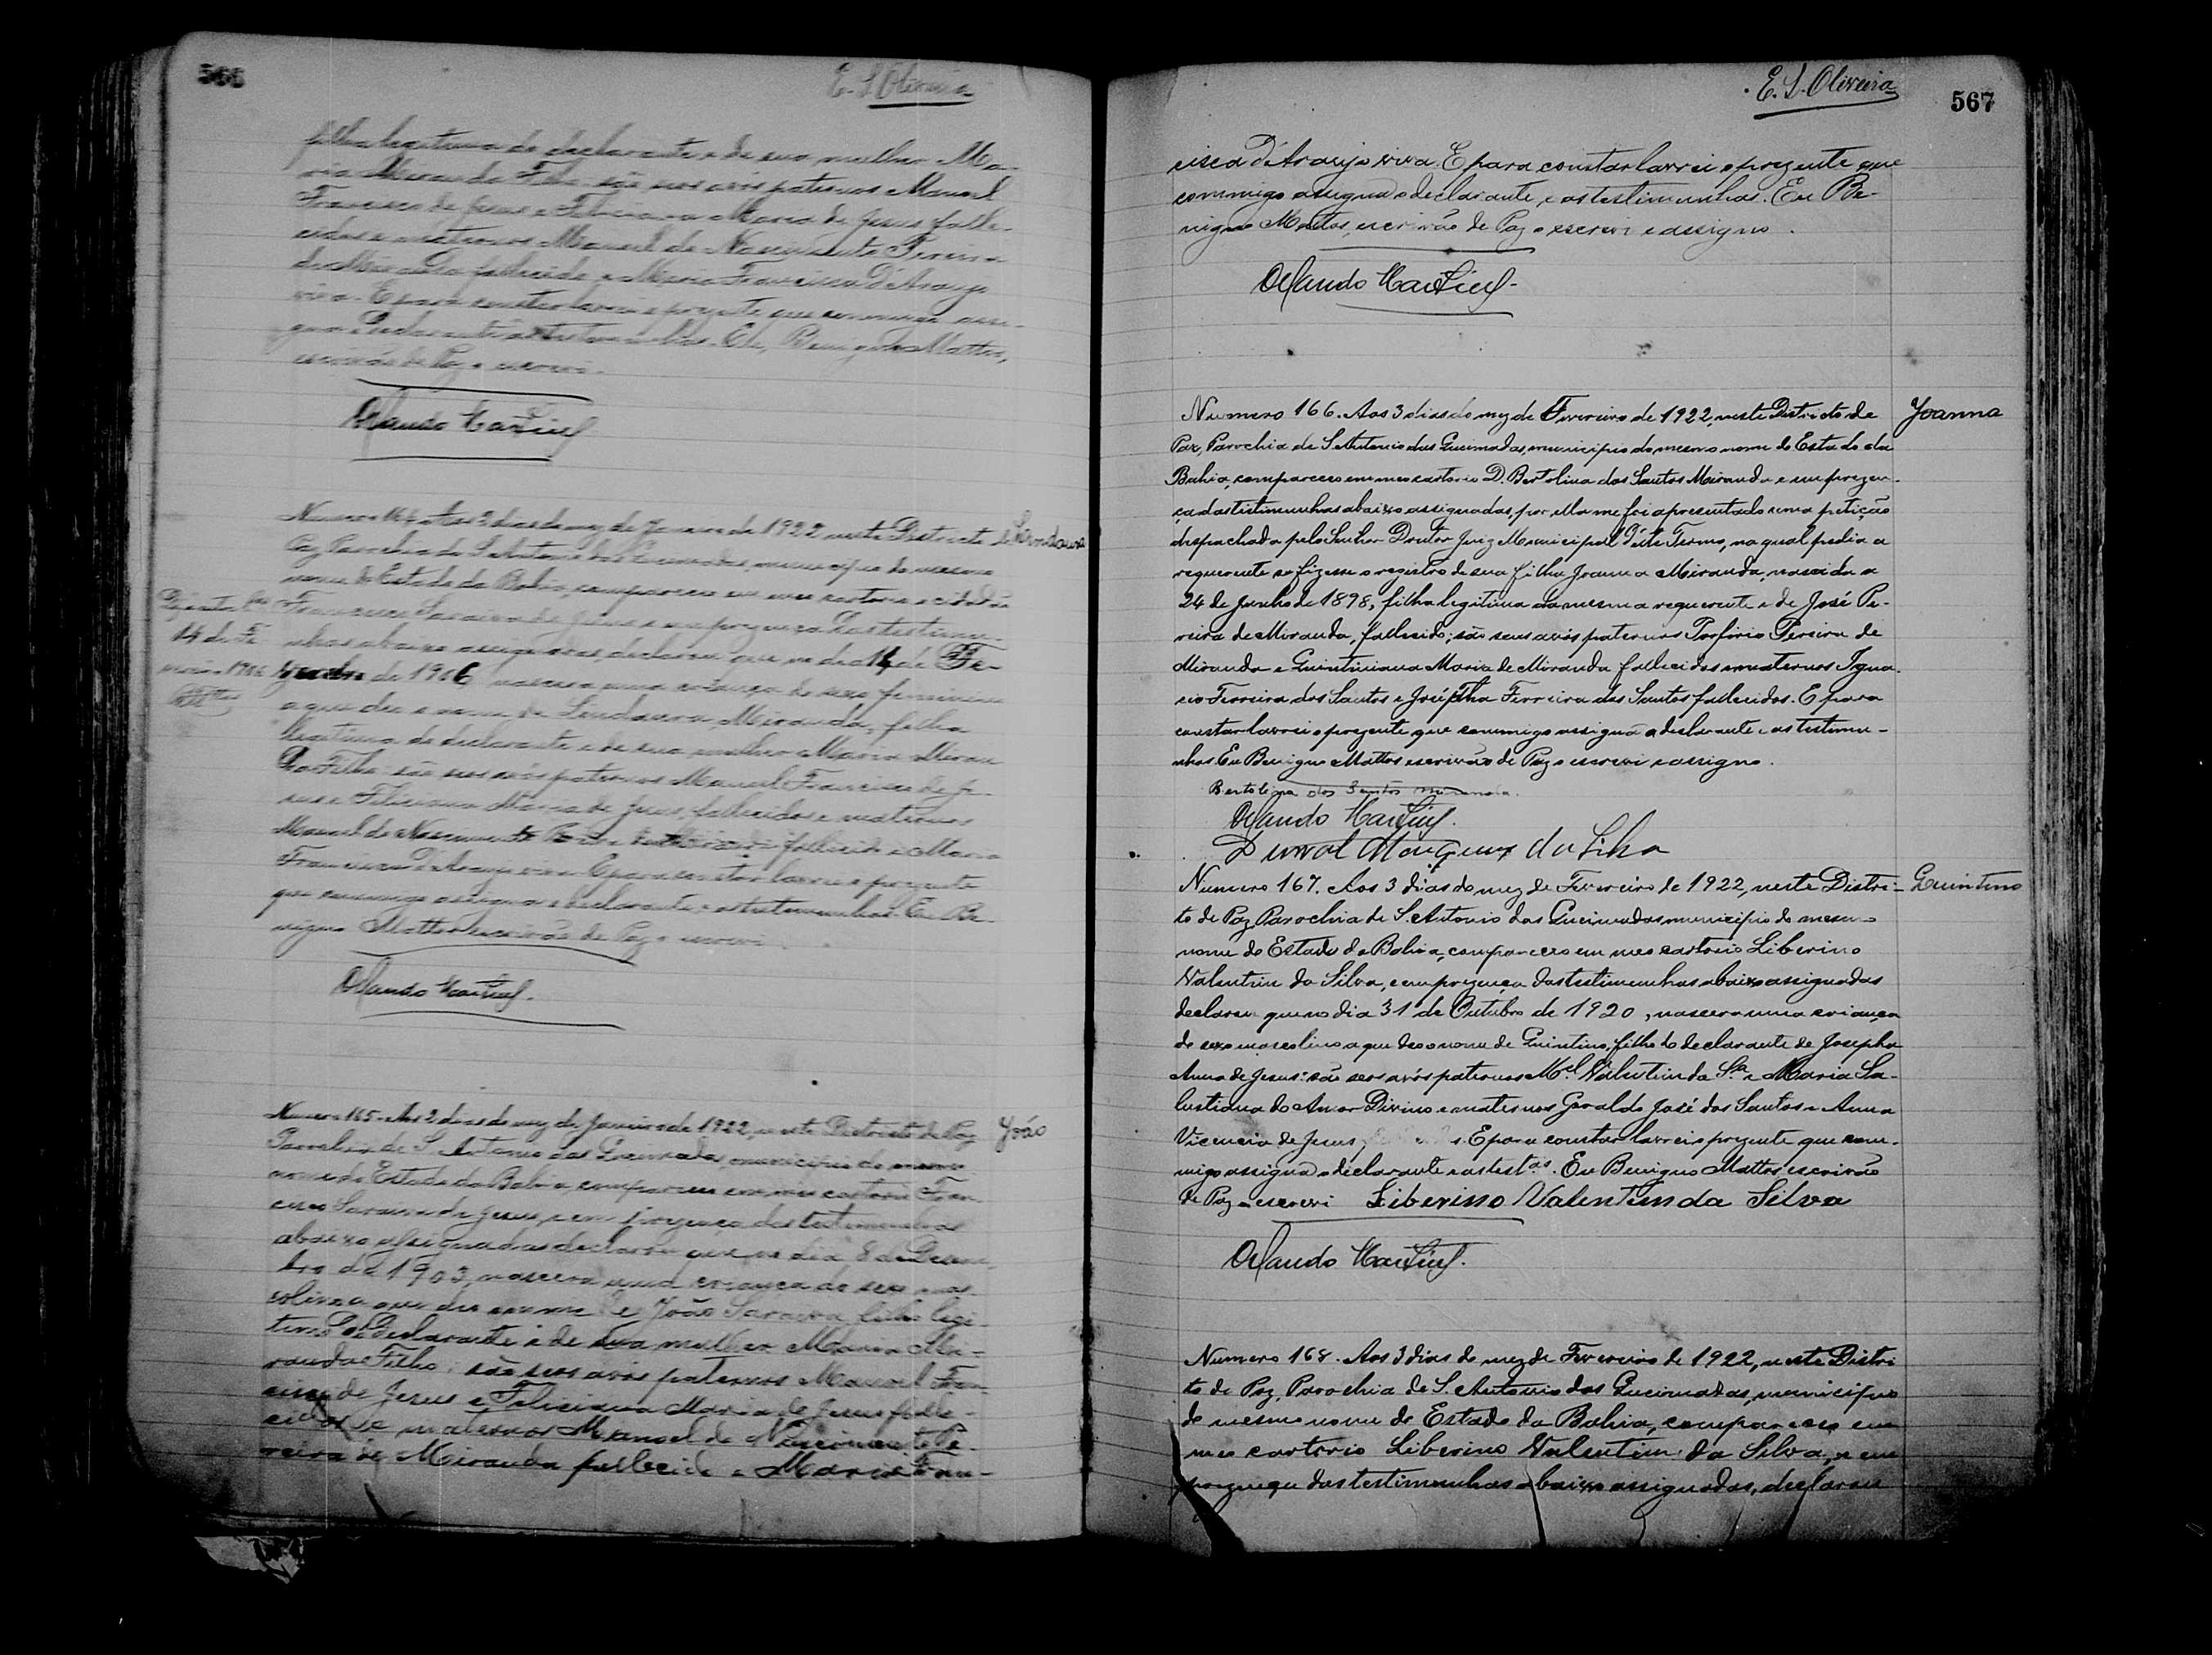 566
E. S. Oliveira
filha legitima do declarante e de sua mulher Ma-
ria Miranda Filha são seus avós paternos Manoel
Francisco de Jesus e Feliciana Maria de Jesus falle-
cidos e maternos Manoel do Nascimento Pereira
de Miranda fallecido e Maria Francisca D'Araujo
viva. E para constar lavrei o prezente que commigo assi-
gna o declarante e as testemunhas. Eu, Benigno Mattos,
escrivão de Paz o escrevi.
Orlando Maciel
Numero 164. Aos 2 dias do mez de Janeiro de 1922 neste Districto de
Lindaura
Paz, Parochia de S. Antonio das Queimadas, municipio do mesmo
nome do Estado da Bahia, compareceu em meu cartorio o cidadão
Francisco Saraiva de Jesus e em prezença das testemu-
nhas abaixo assignadas, declarou que no dia 14 de Fe-
14 de Fe-
de 1906 nascera uma criança do sexo feminino
1906
Mattos
a que deu o nome de Lindaura Miranda, filha
legitima do declarante e de sua mulher Maria Miran
da Filha são seus avós paternos Manoel Francisco de Je-
sus e Feliciana Maria de Jesus, fallecidos e maternos
Manoel do Nascimento fallecido e Maria
Francisca D'Araujo viva. E para constar lavrei o prezente
que commigo assigna o declarante e as testemunhas. Eu Be-
nigno Mattos escrivão de Paz o escrevi.
Orlando Maciel.
Numero 165. Aos 2 dias do mez de Janeiro de 1922, neste Districto de Paz
João
Parochia de S. Antonio das Queimadas, municipio do mesmo
nome do Estado da Bahia, compareceu em meu cartorio Fran-
cisco Saraiva de Jesus, e em prezença das testemunhas
abaixo assignadas declarou que no dia 8 de Dezem-
bro de 1903, nascera uma criança do sexo mas-
colino a que deu o nome de João Saraiva, filho legi-
timo do declarante e de sua mulher Maria Mi-
randa Filha; são seus avós paternos Manoel Fran-
cisco de Jesus e Feliciana Maria de Jesus falle-
cidos e maternos Manoel do Nascimento Pe-
reira de Miranda fallecido e Maria Fran-
E. S. Oliveira
567
cisca D'Araujo viva. E para constar lavrei o prezente que
commigo assigna o declarante, e as testimunhas. Eu Be-
nigno Mattos, escrivão de Paz o escrevi e assigno.
Orlando Maciel.
Numero 166. Aos 3 dias do mez de Fevereiro de 1922, neste Districto de
Joanna
Paz, Parochia de S. Antonio das Queimadas, municipio do mesmo nome do Estado da
Bahia, compareceo em meo cartorio D. Bertolina dos Santos Miranda e em prezen-
ça das testimunhas abaixo assignadas, por ella me foi apresentado uma petição
despachada pelo Senhor Doutor Juiz Municipal d'este Termo, na qual pedia a
requerente se fizesse o registro de sua filha Joanna Miranda, nascida a
24 de Junho de 1898, filha legitima da mesma requerente e de José Pe-
reira de Miranda, fallecido; são seus avós paternos Porfirio Pereira de
Miranda e Quintiniana Maria de Miranda fallecidos e maternos Igna-
cio Ferreira dos Santos e Josépha Ferreira dos Santos fallecidos. E para
constar lavrei o prezente que commigo assigna a declarante e as testimu-
nhas Eu Benigno Mattos escrivão de Paz o escrevi e assigno.
Bertolina dos Santos Miranda.
Orlando Maciel.
Durval Marques da Silva
Numero 167. Aos 3 dias do mez de Fevereiro de 1922, neste Distri-
Quintino
to de Paz, Parochia de S. Antonio das Queimadas municipio do mesmo
nome do Estado da Bahia, compareceo em meo cartorio Liberino
Valentim da Silva, e em prezença das testimunhas abaixo assignadas
declarou que no dia 31 de Outubro de 1920, nascera uma criança
do sexo mascolino a que deo o nome de Quintino, filho do declarante de Josepha
Anna de Jesus: são seos avós paternos Mel. Valentim da Sa. e Maria Sa-
lustiana do Amor Divino e maternos Geraldo José dos Santos e Anna
Vicencia de Jesus, E para constar lavrei o prezente que com-
migo assigna o declarante e as testas. Eu Benigno Mattos escrivão
de Paz o escrevi Liberino Valentim da Silva
Orlando Maciel.
Numero 168. Aos 3 dias do mez de Fevereiro de 1922, neste Distri
to de Paz, Parochia de S. Antonio das Queimadas, municipio
do mesmo nome do Estado da Bahia, compareceo em
meo cartorio Liberino Valentim da Silva, e em
prezença das testimunhas abaixo assignadas, declarou